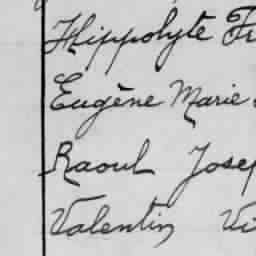 Hippolyte Fr
Eugène Marie
Raoul Josep
Valentin Vi